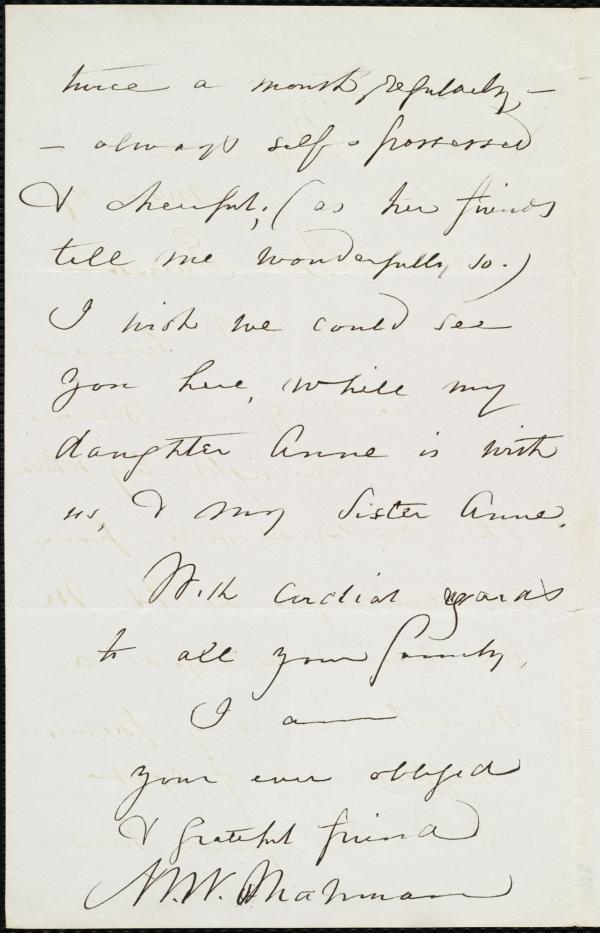 twice a month regularly, –
– always self-possessed
& cheerful; (as her friends
tell me wonderfully so.)
I wish we could see
you here, while my
daughter Anne is with
us, & my Sister Anne.
With cordial regards
to all your family,
I am
your ever obliged
& grateful friend